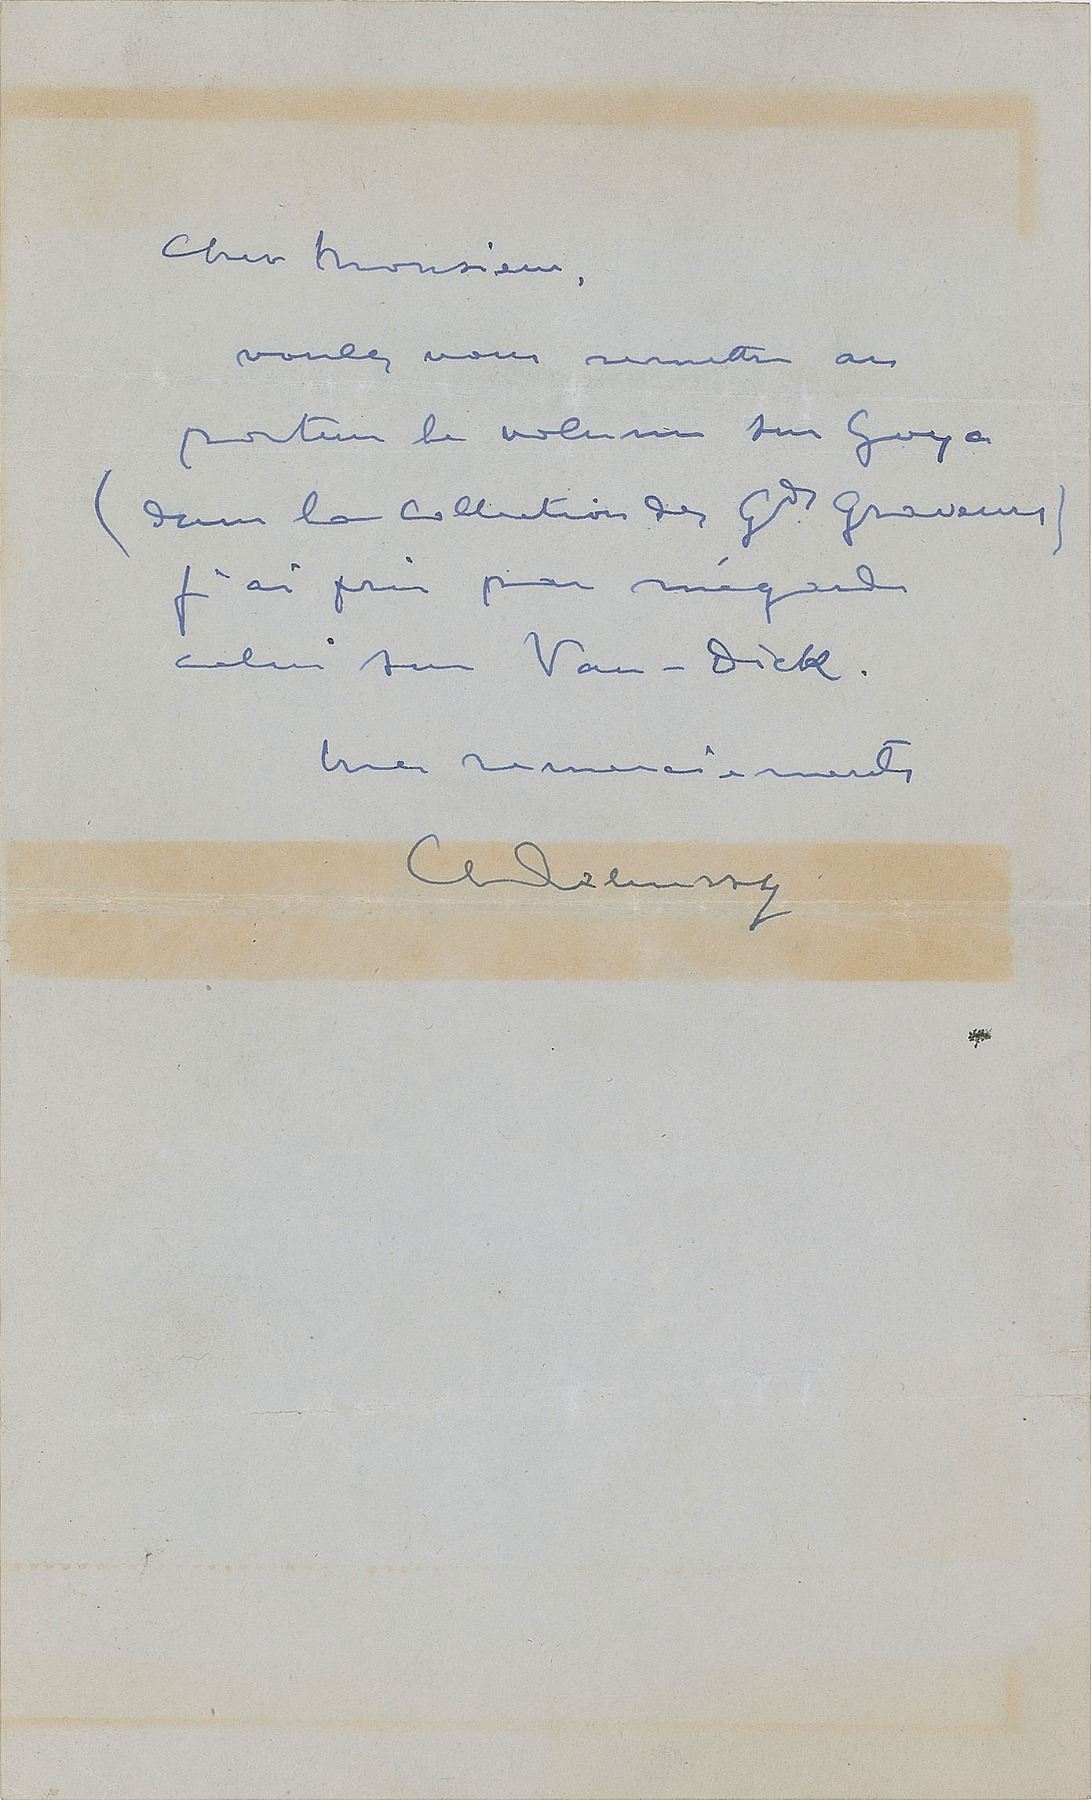 Cher Monsieur,
voulez vous remettre au
porteur le volume sur Goya
(dans la collection des Gds Graveurs)
j'ai pris par mégarde
celui sur Van-Dick.
Mes remerciements
Ch Debussy